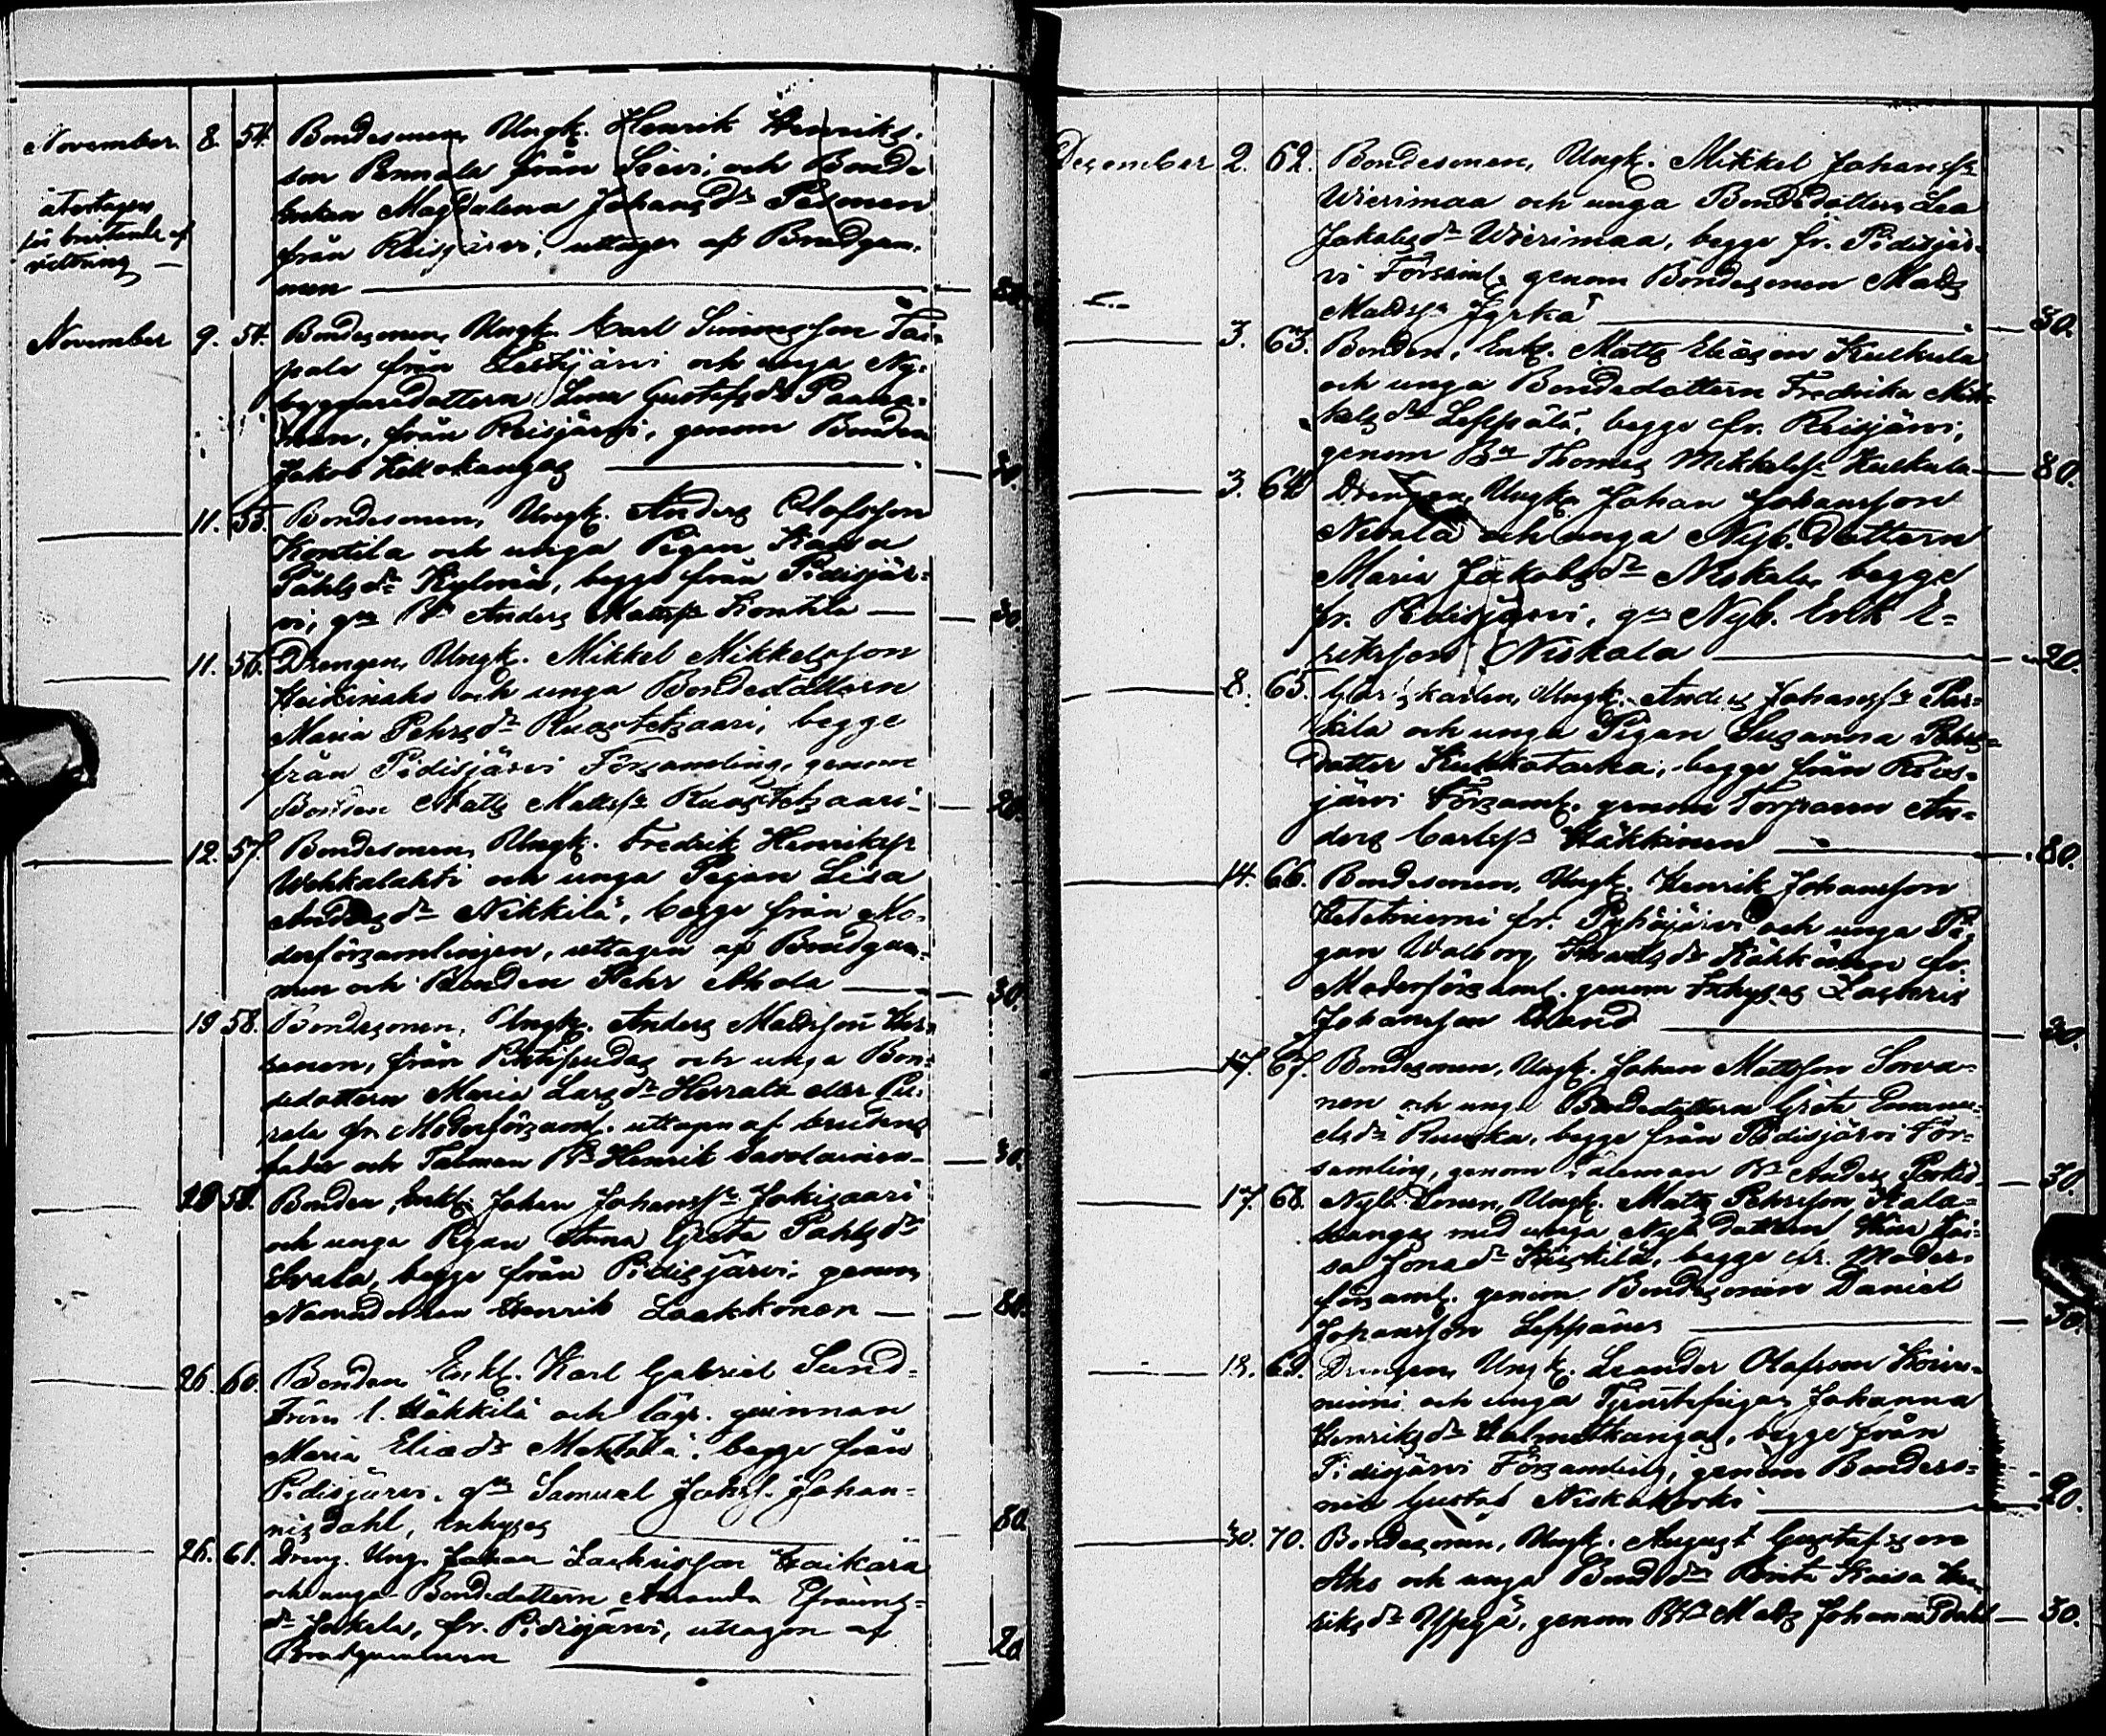 November. 8. 54. Bondesonen, Ungk. Henrik Henriks-
son Pennala från Sievi, och Bonde
återtagen
Enkan Magdalena Johansdr Pesonen
för bristande af
från Reisjärvi, uttagen af Brudgum-
vittring —
men — 80.
November 9. 54. Bondesonen, Ungk. Carl Simonsson Tai-
pale från Lestijärvi och unga Ny-
byggaredottern Lena Gustafsdr Paana-
nen, från Reisjärvi, genom Bonden
Jakob Kellokangas — 30.
— 11. 55. Bondesonen, Ungk. Anders Olofsson
Kontila och unga Pigan Kaisa
Påhlsdr Kylmä, begge från Pidisjär-
vi, gm Bn Anders Mattsn Kontila — 30.
— 11. 56. Drengen, Ungk. Mikkel Mikkelsson
och unga Bondedottern
Maria Pehrsdr Ruostetsaari, begge
från Pidisjärvi Församling, genom
Bonden Matts Mattsn Ruostetsaari — 20.
— 12. 57. Bondesonen, Ungk. Fredrik Henriksn
Wehkalahti och unga Pigan Lisa
Andersdr Nikkilä, begge från Mo-
derförsamlingen, uttagen af Brudgum-
men och Bonden Pehr Ahola — 30.
— 19 58. Bondesonen, Ungk. Anders Mattsson
från Pihtipudas och unga Bon-
dedottern Maria Larsdr Herrala eller
fr. Moderförsaml. uttagen af brudens
fader och Talman Bn Henrik Savolainen — 30.
— 20 59. Bonden, Enkl. Johan Johansn Jokisaari
och unga Pigan Anna Greta Påhlsdr
begge från Pidisjärvi, genom
Nämndeman Henrik Laakkonen — 80.
— 26. 60. Bonden Enkl. Karl Gabriel Sund-
ström l. Häkkilä och läg. quinnan
Maria Eliædr begge från
Pidisjärvi, gm Samuel Johs. Johan-
nisdahl, Inhyses — 80.
— 26. 61. Dreng. Ung. Johan Zachrisson Haikara
och unga Bondedottern Amanda Efraims-
dr Jokela, fr. Pidisjärvi, uttagen af
Brudgummen — 20
December 2. 62. Bondesonen, Ungk. Mikkel Johansn
Wierimaa och unga Bondedottern Lea
Jakobsdr Wierimaa, begge fr. Pidisjär-
vi Församl. genom Bondesonen Matts
Mattsn Jyrkä — 30.
— 3. 63. Bonden, Enkl. Matts Eliæson Kulkula
och unga Bondedottern Fredrika Mik-
kelsdr Leppälä, begge fr. Reisjärvi,
genom Bn Thomas Mikkelsn Kulkula — 80.
— 3. 64 Drengen, Ungk. Johan Johansson
Nivala och unga Nyb. Dottern
Maria Jakobsdr Niskala, begge
fr. Pidisjärvi, gm Nyb. Erik E-
riksson Niskala — 20.
— 8. 65. Ungk. Anders Johansn
och unga Pigan Susanna Pehrs-
dotter Kukkotarka, begge från Reis-
järvi Församl. genom Torparen An-
ders Carlsn Häkkinen — 80.
— 14. 66. Bondesonen, Ungk. Henrik Johansson
Hietaniemi fr. Pyhäjärvi och unga Pi-
gan Walborg Häkkinen fr.
Moderförsaml. genom Inhyses Zachris
Johansson Strand — 30.
— 17. 67. Bondesonen, Ungk. Johan Mattsson Sorva-
nen och unga Bondedottern Greta Emanu-
elsdr Ruuska, begge från Pidisjärvi För-
samling, genom Talman Bn Anders — 30.
— 17. 68. Nyb. Sonen, Ungk. Matts Pehrsson Kala-
kangas med unga Nyb. dottern Kai-
sa Jonædr begge fr. Moder-
församl. genom Bondesonen Daniel
Johansson Leppänen — 30.
— 18. 69. Drengen, Ungk. Leander Olofsson Koivu-
niemi och unga Tjenstepigan Johanna
Henriksdr Halmetkangas, begge från
Pidisjärvi Församling, genom Bondeso-
nen Gustaf Niskakoski — 20.
— 30. 70. Bondesonen, Ungk. August Gustafsson
Aho och unga Bonddn Brita Kaisa Hen-
riksdr Yppyä, genom Bn Matts Johannesdahl — 30.